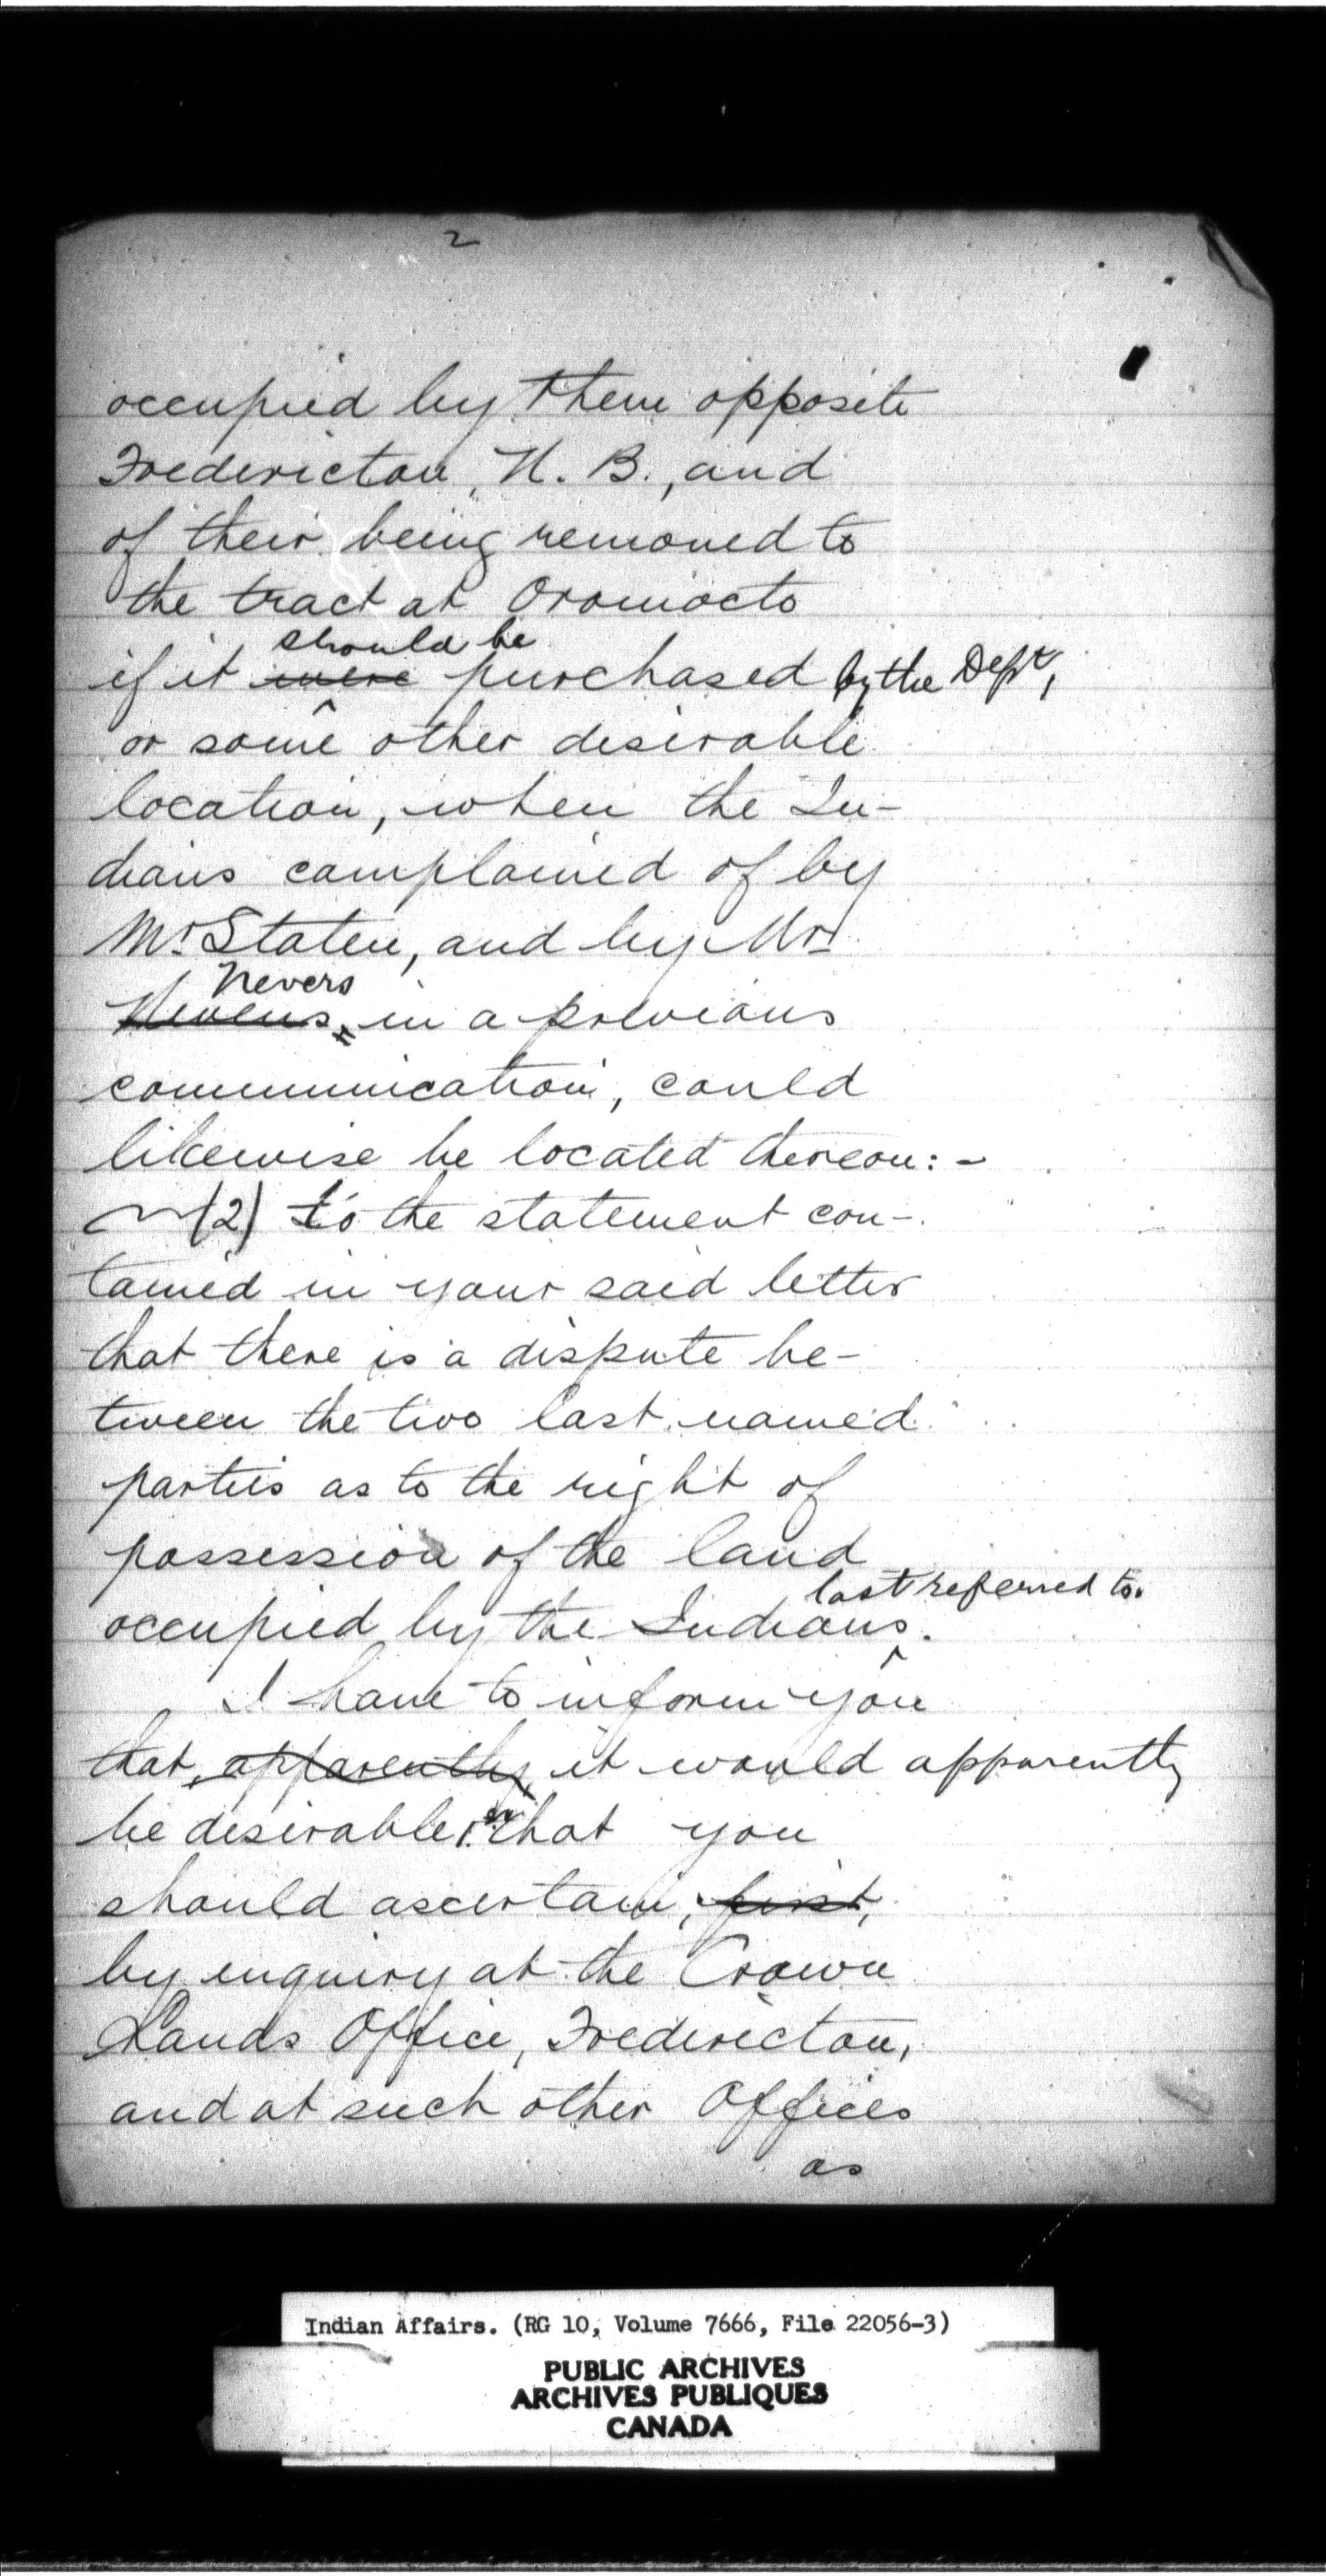 2
occupied by them opposite
Fredericton, N. B., and
of their being removed to
the tract at Oromocto
should be
if it were purchased by the Dept,
or some other desirable
location, when the In-
dians complained of by
Mr Staten, and by Mr
Nevers
Nevens, in a previous
communication, could
likewise be located thereon:-
(2) to the statement con-
tained in your said letter
that there is a dispute be-
tween the two last named
parties as to the right of
possession of the land
last referred to.
occupied by the Indians.
I have to inform you
that, apparently, it would apparently
be desirable, that you
should ascertain, first,
by enquiry at the Crown
Lands Office, Fredericton,
and at such other Offices
as
Indian Affairs. (RG 10, Volume 7666, File 22056-3)
PUBLIC ARCHIVES
ARCHIVES PUBLIQUES
CANADA